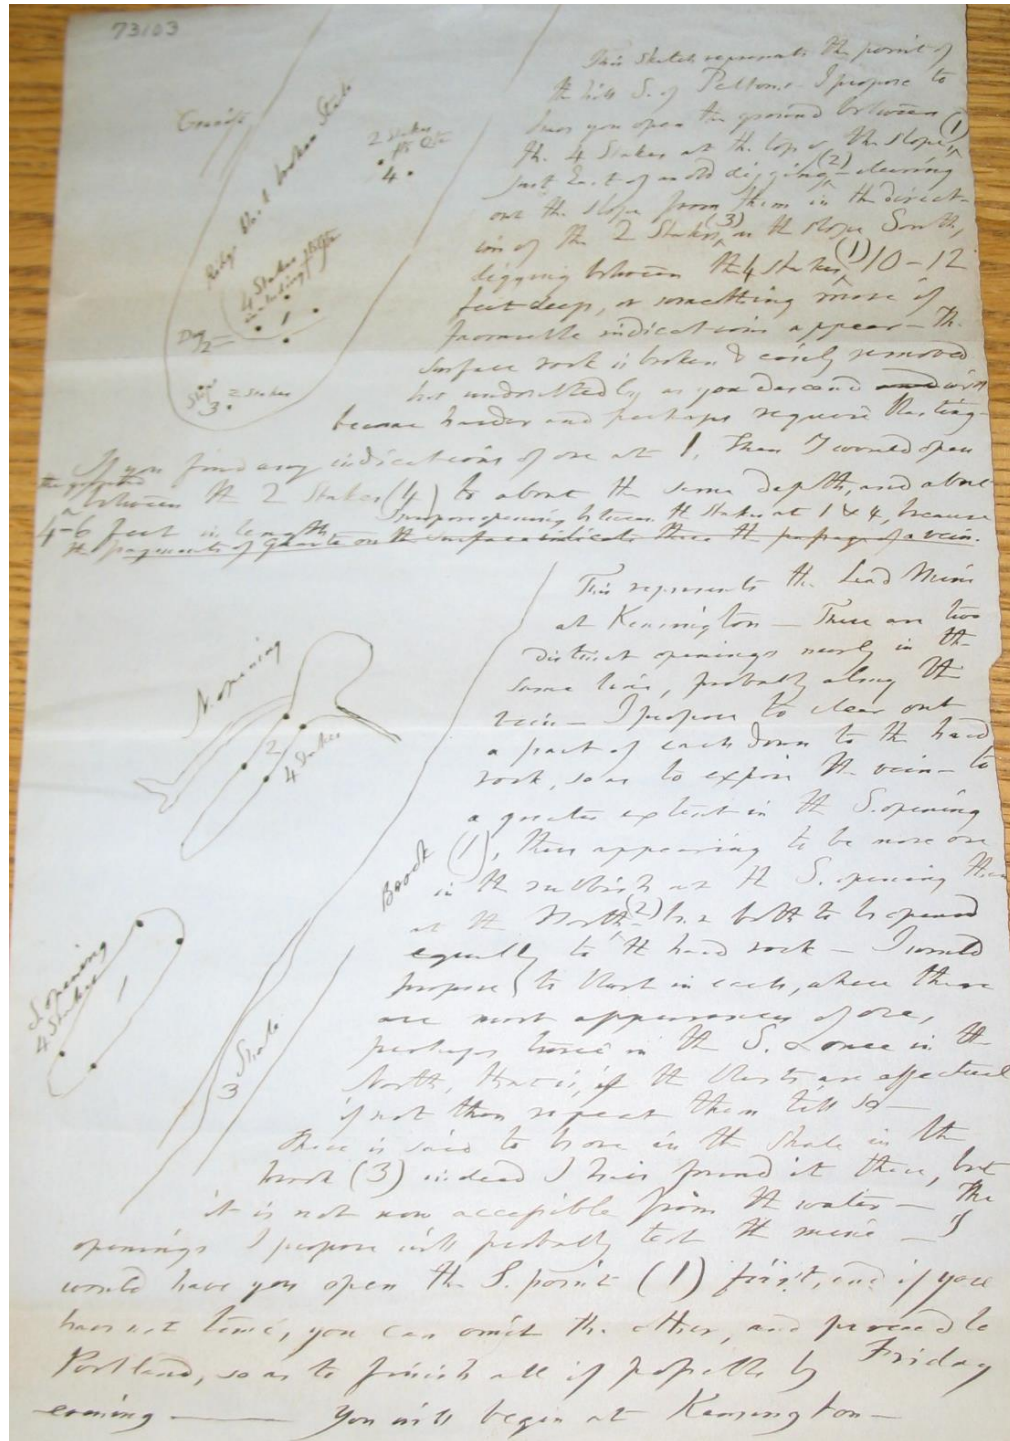 73103
This sketch represents the point of
the hill S. of Pelton's. I propose to
have you open the ground between
the 4 Stakes at the top of the slope, (1)
just East of an old digging, (2) – clearing
out the slope from them in the direct-
ion of the 2 Stakes, (3) on the slope South,
digging between the 4 stakes, (1) 10 – 12
feet deep, or something more if
favorable indications appear – The
surface rock is broken & easily removed
but undoubtedly as you descend and will
become harder and perhaps require blasting –
If you find any indications of ore at 1, then I would open
the ground
between the 2 Stakes (4) to about the same depth, and about
4–6 feet in length.
I propose opening between the Stakes at 1 & 4, because
the fragments of quartz on the surface indicate there the passage of a vein.
Ridge
2 Stakes
4
4 Stakes
including
1
2
3
2 Stakes
This represents the Lead Mine
at Kensington – There are two
distinct openings nearly in the
same line, probably along the
vein – I propose to clear out
a part of each down to the hard
rock, so as to expose the vein – to
a greater extent in the S. opening
(1), there appearing to be more ore
in the rubbish at the S. opening than
at the North (2) but both to be opened
equally to the hard rock – I would
propose to blast in each, where there
are most appearances of ore,
perhaps twice in the S. & once in the
North, that is, if the blasts are effectual
if not then repeat them till so –
There is said to be ore in the Shale in the
brook (3) indeed I have found it there, but
it is not now accessible from the water – The
openings I propose will probably test the mine – I
would have you open the S. point (1) first, and if you
have not time, you can omit the other, and proceed to
Portland, so as to finish all if possible by Friday
evening – You will begin at Kensington –
N. opening
2
4 Stakes
Brook
S. opening
4 Stakes
1
3 Shale